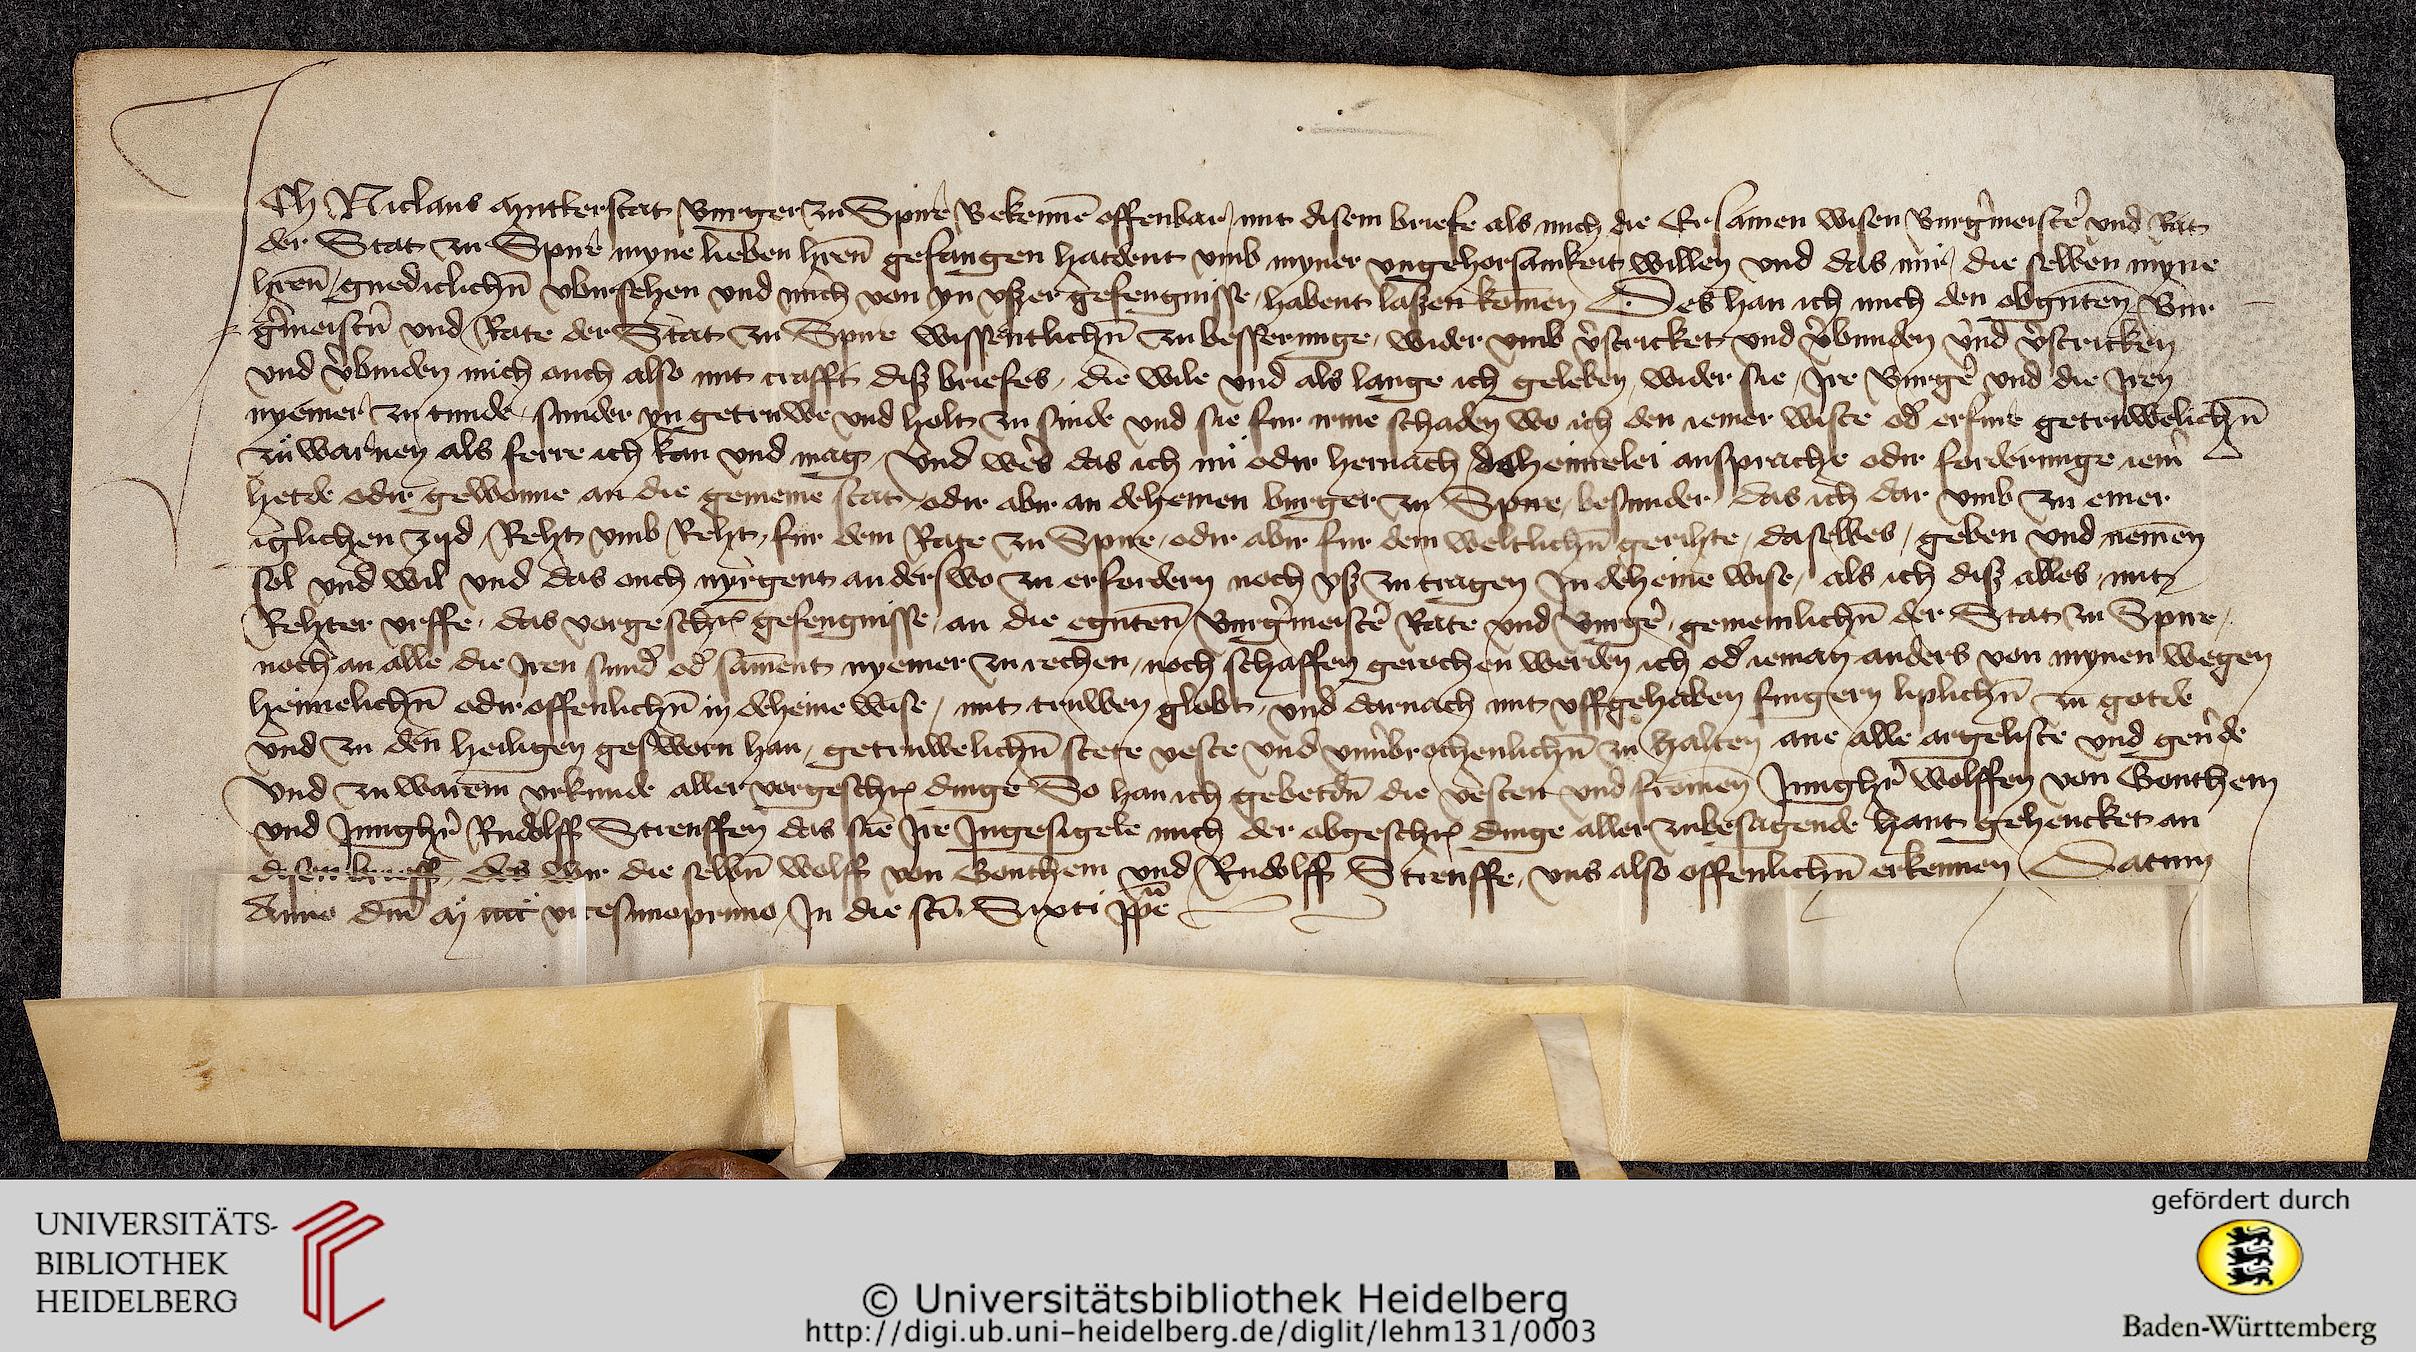 Ich Niclaus Mutterstat Burger zu Spire Bekenne offenbar mit disem briefe als mich die Ersamen wisen Burgermeister und Rat
der Stat zu Spire myne lieben hren gefangen hatdent umb myner ungehorsamkeit willen und das mir die selben myne
hren gnediclichn ubirsehen und mich von yn usser gefengnisse habent lassen komen Des han ich mich den obgnten Bur
germeistern und Rate der Stat zu Spire wissentlichn zu besserunge wider umb verstricket und verbunden und verstricken
und verbinden mich ouch also mit crafft diß briefes die wile und als lange ich geleben wider sie Ire Burger und die Iren
nyemer zu tunde sunder yn getruwe und holt zu sinde und sie fur irme schaden wo ich den iemer wiste oder erfure getruwelichn
zu warnen als ferre ich kan und mag Und wers das ich nu odir hernach deheinerlei ansprache odir forderunge iemer
hette odir gewonne an die gemeine stat odir abir an deheinen burger zu Spire besunder das ich dar umb zu einer
iglichen zijd Reht umb Reht fur dem Rate zu Spire odir abir fur dem weltlichn gerihte daselbes geben und nemen
sol und wil und das ouch nyrgent anderswo zu erfordern noch uß zu tragen In deheine wise als ich diß alles mit
Rehter urffe das vorgeschr gefengnisse an die egnten Burgermeister Rate und Burger gemeinlichn der Stat zu Spire
noch an alle die Iren sunder oder sament nyemer zu rechen noch schaffen gerochen werden ich oder ieman anders von mynen wegen
heimelichn odir offenlichn in deheine wise mit truwen globt und darnach mit uffgehaben fingern liplichn zu gotde
und zu den heiligen gesworn han getruwelichn stete veste und unverbrochenlichn zu halten ane alle argeliste und geverde
Und zu warem urkunde aller vorgeschr dinge So han ich gebetdn die vesten und fromen Junghr Wolffen von Gonthem
und Junghr Rudolff Streuffen das sie Ire Ingesigele mich der obgeschr dinge aller zubesagende hant gehencket an
disen brieff des wir die selbn Wolff von Gonthem und Rudolff Streuffe uns also offenlichn erkennen Datum
Anno dni M cccc vicesimoprimo In die sci Sixti ppe
UNIVERSITÄTS-
BIBLIOTHEK
HEIDELBERG
© Universitätsbibliothek Heidelberg
http://digi.ub.uni-heidelberg.de/diglit/lehm131/0003
gefördert durch
Baden-Württemberg